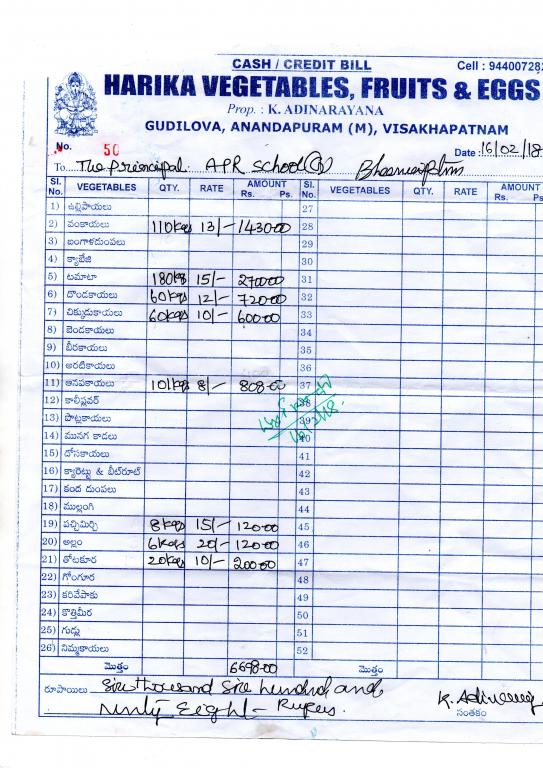 CASH / CREDIT BILL
Cell : 94400728
HARIKA VEGETABLES, FRUITS & EGGS
Prop. : K. ADINARAYANA
GUDILOVA, ANANDAPURAM (M), VISAKHAPATNAM
No. 50
Date : 16/02/18
To... The Principal. APR School
Sl. No. VEGETABLES QTY. RATE AMOUNT Rs. Ps. Sl. No. VEGETABLES QTY. RATE AMOUNT Rs. Ps.
1) ఉల్లిపాయలు 27
2) వంకాయలు 110kgs 13/- 1430-00 28
3) బంగాళదుంపలు 29
4) క్యాబేజి 30
5) టమాటా 180kgs 15/- 2700-00 31
6) దొండకాయలు 60kgs 12/- 720-00 32
7) చిక్కుడుకాయలు 60kgs 10/- 600-00 33
8) బెండకాయలు 34
9) బీరకాయలు 35
10) అరటికాయలు 36
11) ఆనపకాయలు 101kgs 8/- 808-00 37
12) కాలీఫ్లవర్ 38
13) పొట్లకాయలు 39
14) మునగ కాడలు 40
15) దోసకాయలు 41
16) క్యారెట్టు & బీట్‌రూట్ 42
17) కంద దుంపలు 43
18) ముల్లంగి 44
19) పచ్చిమిర్చి 8kgs 15/- 120-00 45
20) అల్లం 6kgs 20/- 120-00 46
21) తోటకూర 20kgs 10/- 200-00 47
22) గోంగూర 48
23) కరివేపాకు 49
24) కొత్తిమీర 50
25) గుడ్లు 51
26) నిమ్మకాయలు 52
మొత్తం 6698-00 మొత్తం
రూపాయిలు Six thousand Six hundred and
Ninty Eight - Rupees.
సంతకం